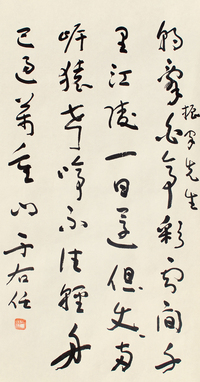 振先生
朝辭白帝彩雲間千
里江陵一日還但兩
岸猿聲啼不住輕舟
已過萬重山 于右任